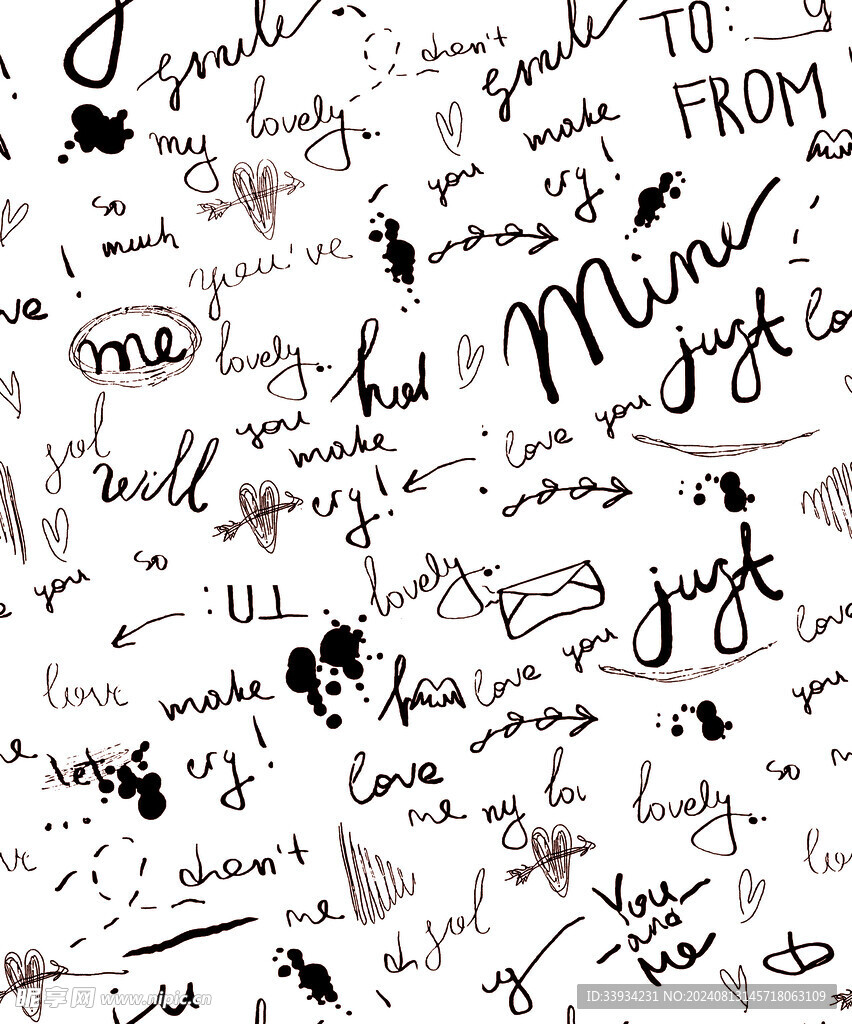 smile
smile
TO:
my lovely..
FROM
you make
cry!
so
much
you've
Mine
me
lovely..
just
you
make
cry!
love you
will
lovely..
so
you
TO:
just
love you
love
make
cry!
love
you
let
love
me my
lovely..
so
me
You
and
Me
昵享网 www.nipic.cn
ID:33934231 NO:20240813145718063109